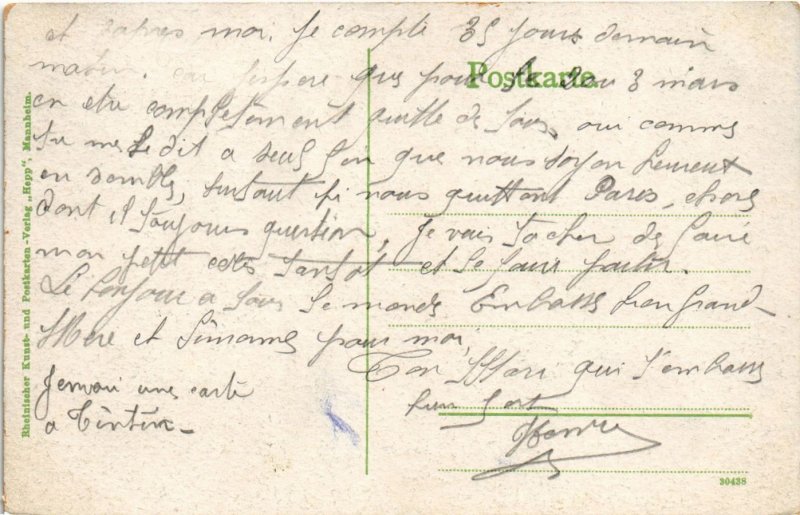 et d'apres moi. Je compte 35 jours demain
matin. car j'espere que pour le 2 ou 3 mars
en etre completement quitte de tous, oui comme
tu me le dit a seul fin que nous soyon heureux
en sembles, surtout si nous quittons Paris, chose
dont il toujours question, Je vais tacher de faire
mon petit cotes tantot et le faire partir.
Le bonjour a tous le monde. Embrasse bien grand
Mere et Simonne pour moi,
Ton Mari qui t'embrasse
bien fort
Henri
J'envoi une carte
a Tintin
Postkarte.
Rheinischer Kunst- und Postkarten-Verlag „Hepp", Mannheim.
30438